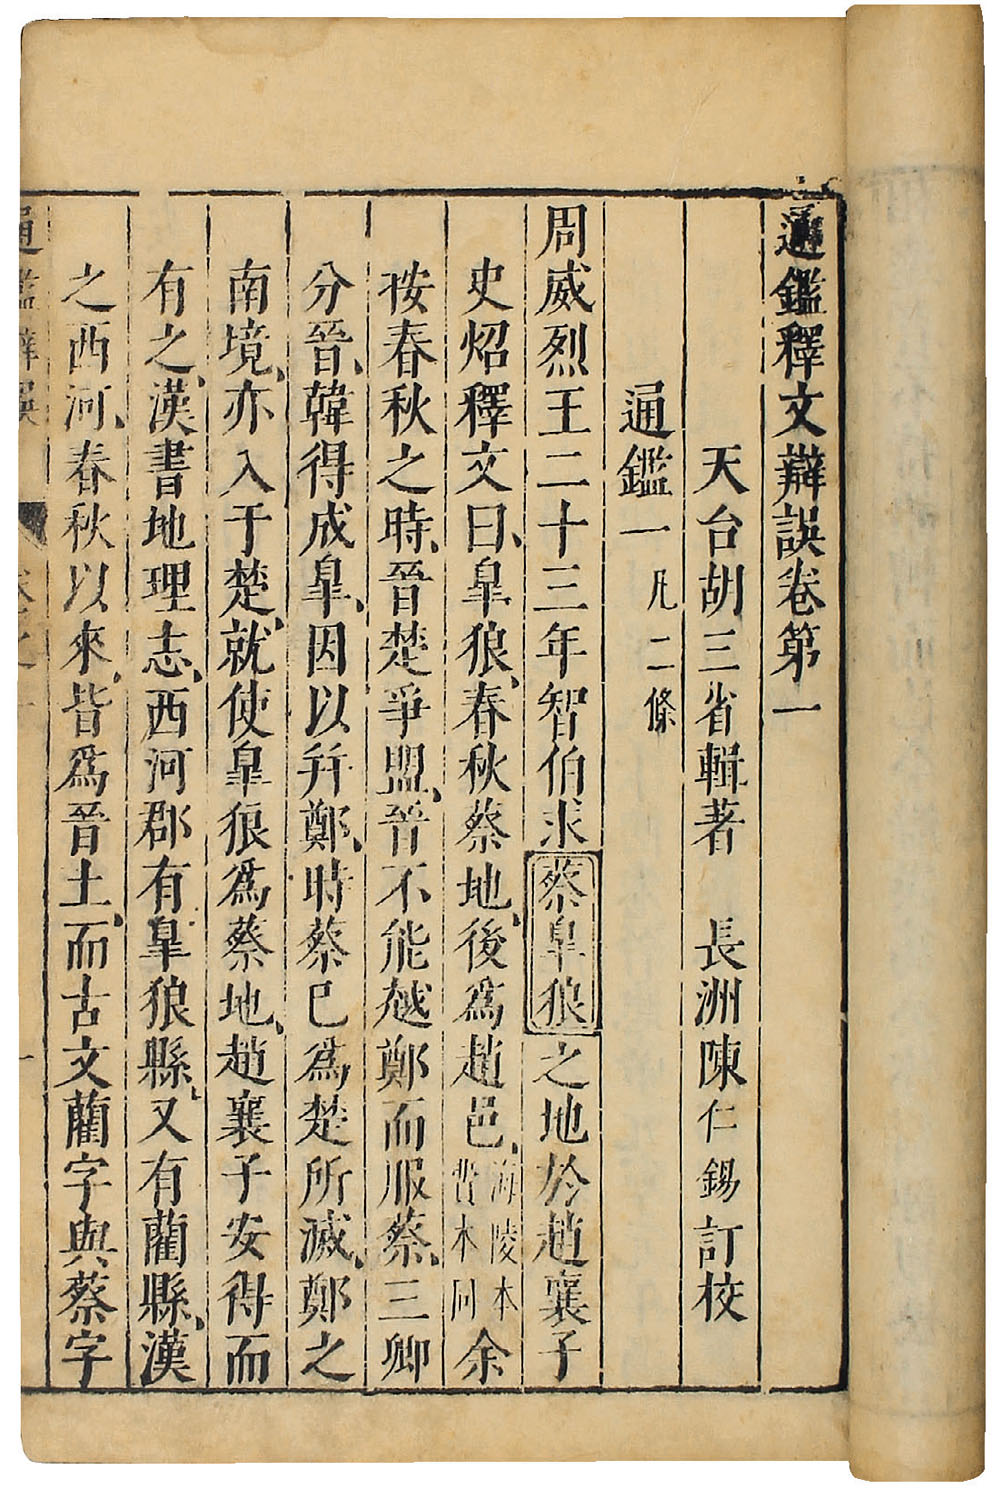 通鑑釋文辯誤卷第一
天台胡三省輯著　長洲陳仁錫訂校
通鑑一 凡二條
周威烈王二十三年智伯求蔡皐狼之地於趙襄子
史炤釋文曰皐狼春秋蔡地後爲趙邑海陵本費本同余
按春秋之時晉楚爭盟晉不能越鄭而服蔡三卿
分晉韓得成皐因以幷鄭時蔡已爲楚所滅鄭之
南境亦入于楚就使皐狼爲蔡地趙襄子安得而
有之漢書地理志西河郡有皐狼縣又有藺縣漢
之西河春秋以來皆爲晉土而古文藺字與蔡字